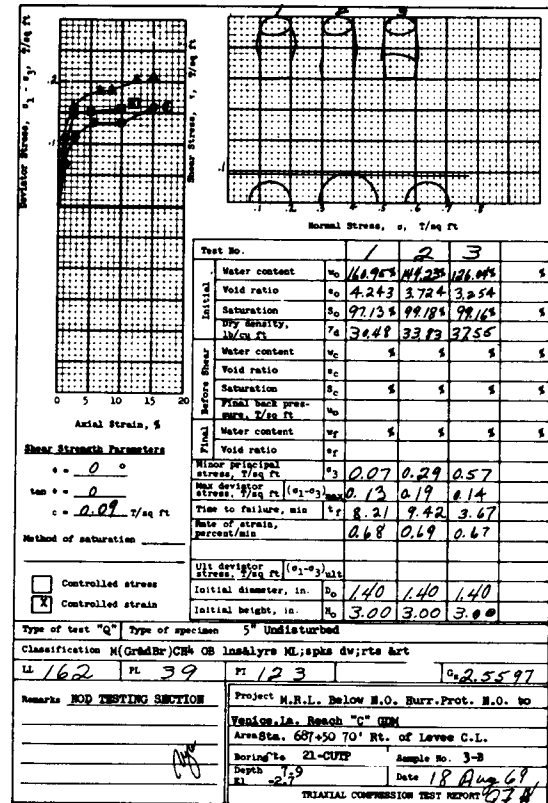 1 2 3
Deviator Stress, σ1 - σ3, T/sq ft
Shear Stress, τ, T/sq ft
.2
.1
.1
.1 .2 .3 .4 .5 .6 .7 .8
Normal Stress, σ, T/sq ft
0 5 10 15 20
Axial Strain, %
Shear Strength Parameters
φ = 0 °
tan φ = 0
c = 0.09 T/sq ft
Method of saturation
Controlled stress
X Controlled strain
Test No. 1 2 3
Initial
Water content w0 160.95% 144.23% 126.04% %
Void ratio e0 4.243 3.724 3.254
Saturation S0 97.13% 99.18% 99.16% %
Dry density, lb/cu ft γd 30.48 33.83 37.56
Before Shear
Water content wc % % % %
Void ratio ec
Saturation Sc % % % %
Final back pressure, T/sq ft u0
Final
Water content wf % % % %
Void ratio ef
Minor principal stress, T/sq ft σ3 0.07 0.29 0.57
Max deviator stress, T/sq ft (σ1-σ3)max 0.13 0.19 0.14
Time to failure, min tf 8.21 9.42 3.67
Rate of strain, percent/min 0.68 0.69 0.67
Ult deviator stress, T/sq ft (σ1-σ3)ult
Initial diameter, in. D0 1.40 1.40 1.40
Initial height, in. H0 3.00 3.00 3.00
Type of test "Q" Type of specimen 5" Undisturbed
Classification M(Gr&dBr)CH4 OB lns&lyrs ML;spks dw;rts &rt
LL 162 PL 39 PI 123 Gs 2.5597
Remarks NOD TESTING SECTION
Project M.R.L. Below N.O. Hurr.Prot. N.O. to
Venice,La. Reach "C" GDM
Area Sta. 687+50 70' Rt. of Levee C.L.
Boring 21-CUTP Sample No. 3-B
Depth 7.9
El -2.7
Date 18 Aug 69
TRIAXIAL COMPRESSION TEST REPORT